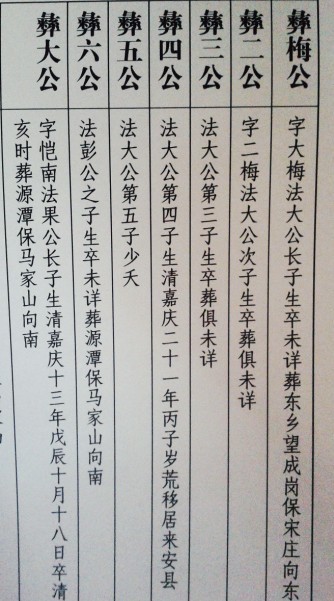 彝梅公
字大梅法大公长子生卒未详葬东乡望成岗保宋庄向东
彝二公
字二梅法大公次子生卒葬俱未详
彝三公
法大公第三子生卒葬俱未详
彝四公
法大公第四子生清嘉庆二十一年丙子岁荒移居来安县
彝五公
法大公第五子少夭
彝六公
法彭公之子生卒未详葬源潭保马家山向南
彝大公
字恺南法果公长子生清嘉庆十三年戊辰十月十八日卒清
亥时葬源潭保马家山向南